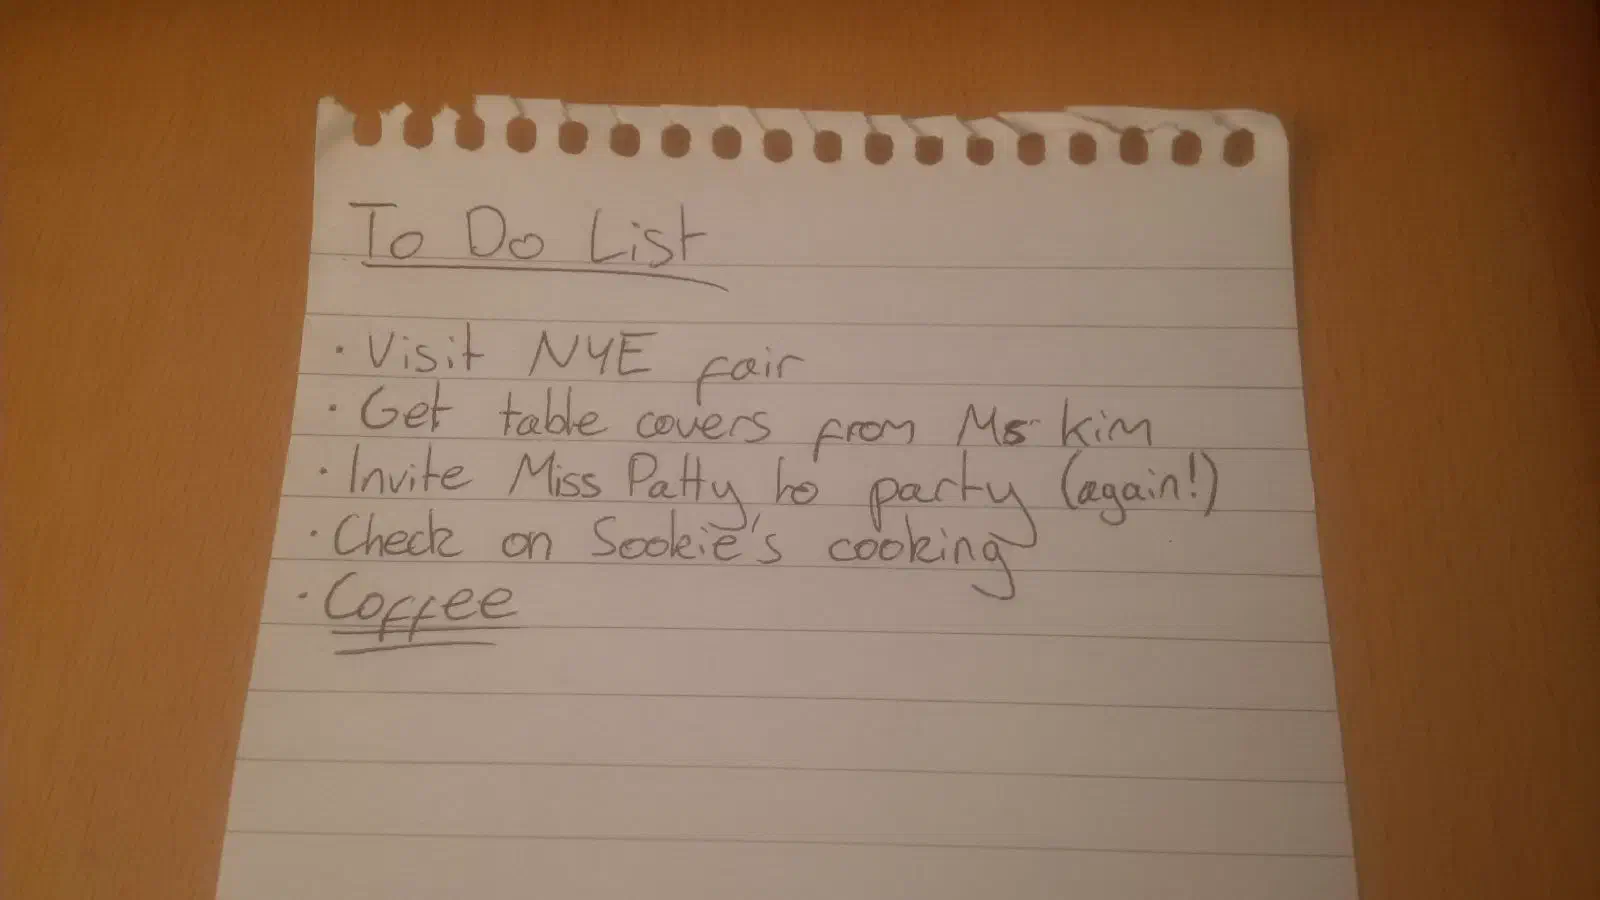 To Do List
· Visit NYE fair
· Get table covers from Ms Kim
· Invite Miss Patty to party (again!)
· Check on Sookie's cooking
· Coffee